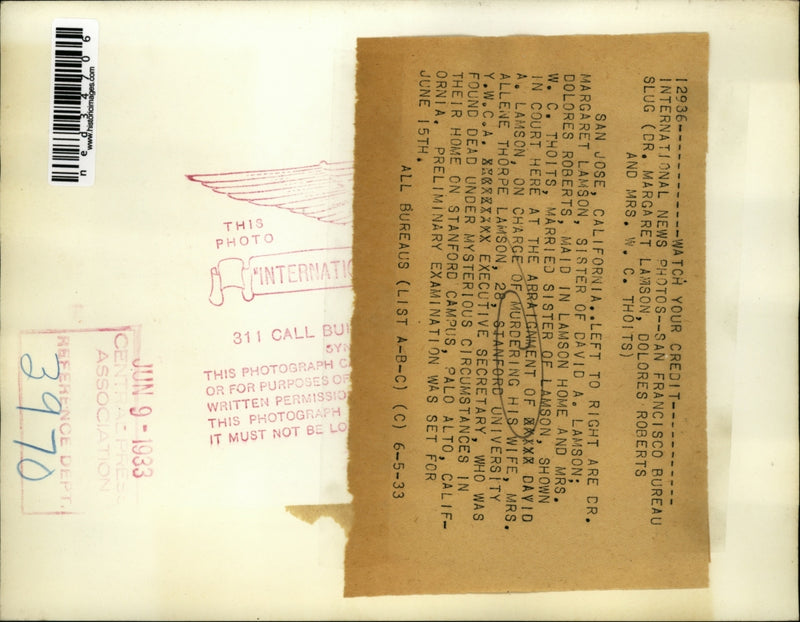 12936------------WATCH YOUR CREDIT------------
INTERNATIONAL NEWS PHOTOS--SAN FRANCISCO BUREAU
SLUG (DR. MARGARET LAMSON, DOLORES ROBERTS
AND MRS. W. C. THOITS)
SAN JOSE, CALIFORNIA..LEFT TO RIGHT ARE DR.
MARGARET LAMSON, SISTER OF DAVID A. LAMSON;
DOLORES ROBERTS, MAID IN LAMSON HOME AND MRS.
W. C. THOITS, MARRIED SISTER OF LAMSON, SHOWN
IN COURT HERE AT THE ARRAIGNMENT OF XXXXX DAVID
A. LAMSON, ON CHARGE OF MURDERING HIS WIFE, MRS.
ALLENE THORPE LAMSON, 28, STANFORD UNIVERSITY
Y.W.C.A. XXXXXXXX EXECUTIVE SECRETARY, WHO WAS
FOUND DEAD UNDER MYSTERIOUS CIRCUMSTANCES IN
THEIR HOME ON STANFORD CAMPUS, PALO ALTO, CALIF-
ORNIA. PRELIMINARY EXAMINATION WAS SET FOR
JUNE 15TH.
ALL BUREAUS (LIST A-B-C) (C) 6-5-33
THIS
PHOTO
INTERNATIO
311 CALL BUI
SYN
THIS PHOTOGRAPH C
OR FOR PURPOSES OF
WRITTEN PERMISSIO
THIS PHOTOGRAPH
IT MUST NOT BE LO
JUN 9 - 1933
CENTRAL PRESS
ASSOCIATION
REFERENCE DEPT.
3970
www.historicimages.com
ned34706